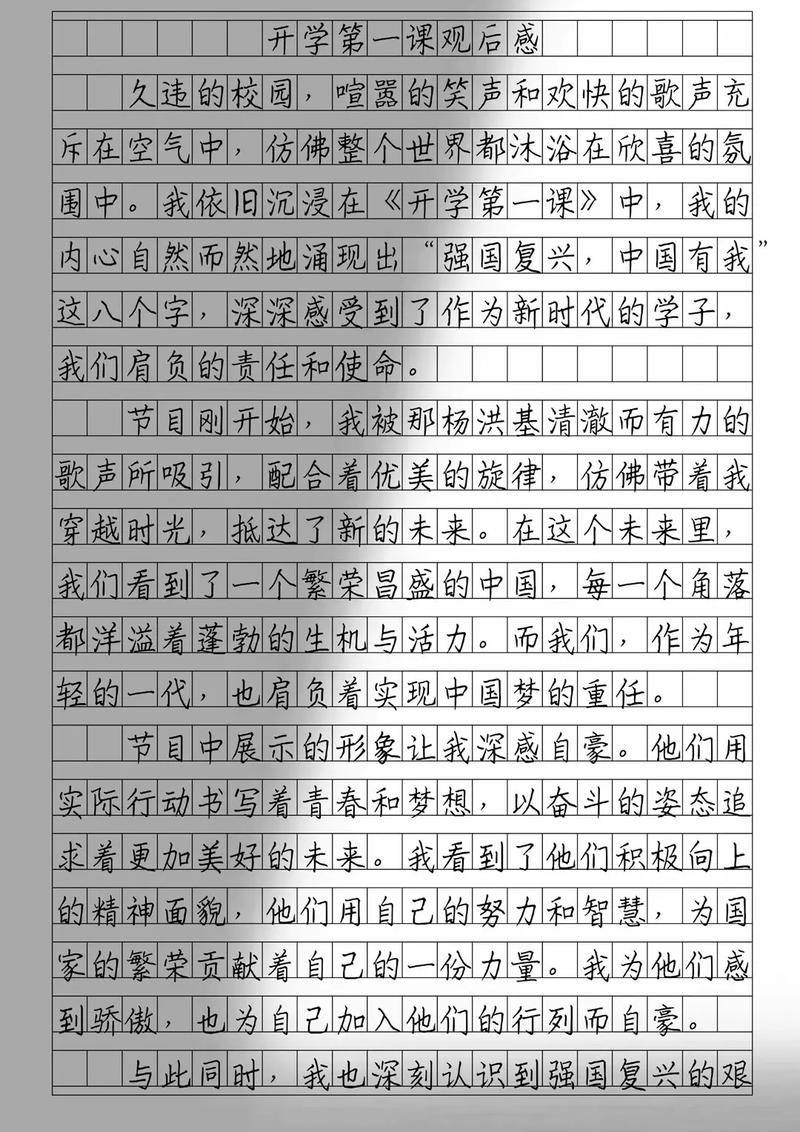 开学第一课观后感
久违的校园，喧嚣的笑声和欢快的歌声充
斥在空气中，仿佛整个世界都沐浴在欣喜的氛
围中。我依旧沉浸在《开学第一课》中，我的
内心自然而然地涌现出“强国复兴，中国有我”
这八个字，深深感受到了作为新时代的学子，
我们肩负的责任和使命。
节目刚开始，我被那杨洪基清澈而有力的
歌声所吸引，配合着优美的旋律，仿佛带着我
穿越时光，抵达了新的未来。在这个未来里，
我们看到了一个繁荣昌盛的中国，每一个角落
都洋溢着蓬勃的生机与活力。而我们，作为年
轻的一代，也肩负着实现中国梦的重任。
节目中展示的形象让我深感自豪。他们用
实际行动书写着青春和梦想，以奋斗的姿态追
求着更加美好的未来。我看到了他们积极向上
的精神面貌，他们用自己的努力和智慧，为国
家的繁荣贡献着自己的一份力量。我为他们感
到骄傲，也为自己加入他们的行列而自豪。
与此同时，我也深刻认识到强国复兴的艰